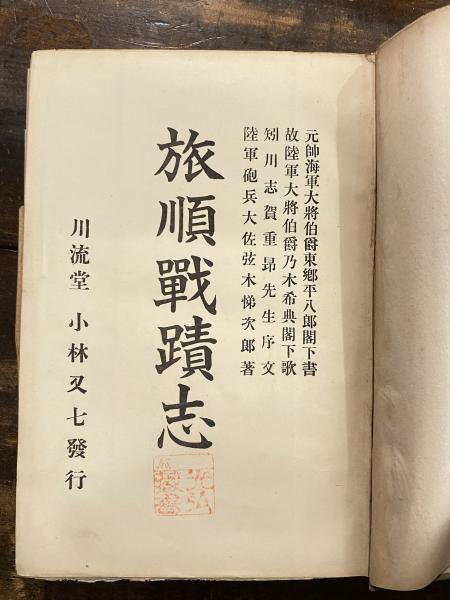 元帥海軍大將伯爵東鄕平八郎閣下書
故陸軍大將伯爵乃木希典閣下歌
矧川志賀重昂先生序文
陸軍砲兵大佐弦木悌次郎著
旅順戰蹟志
川流堂 小林又七發行